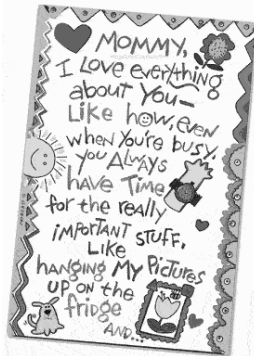 MOMMY,
I Love everything
about You—
Like how, even
when You're busy,
you ALWAYS
have Time
for the really
IMPORTANT STUFF,
LIKE
hanging MY PICTURES
UP ON the
fridge
AND...